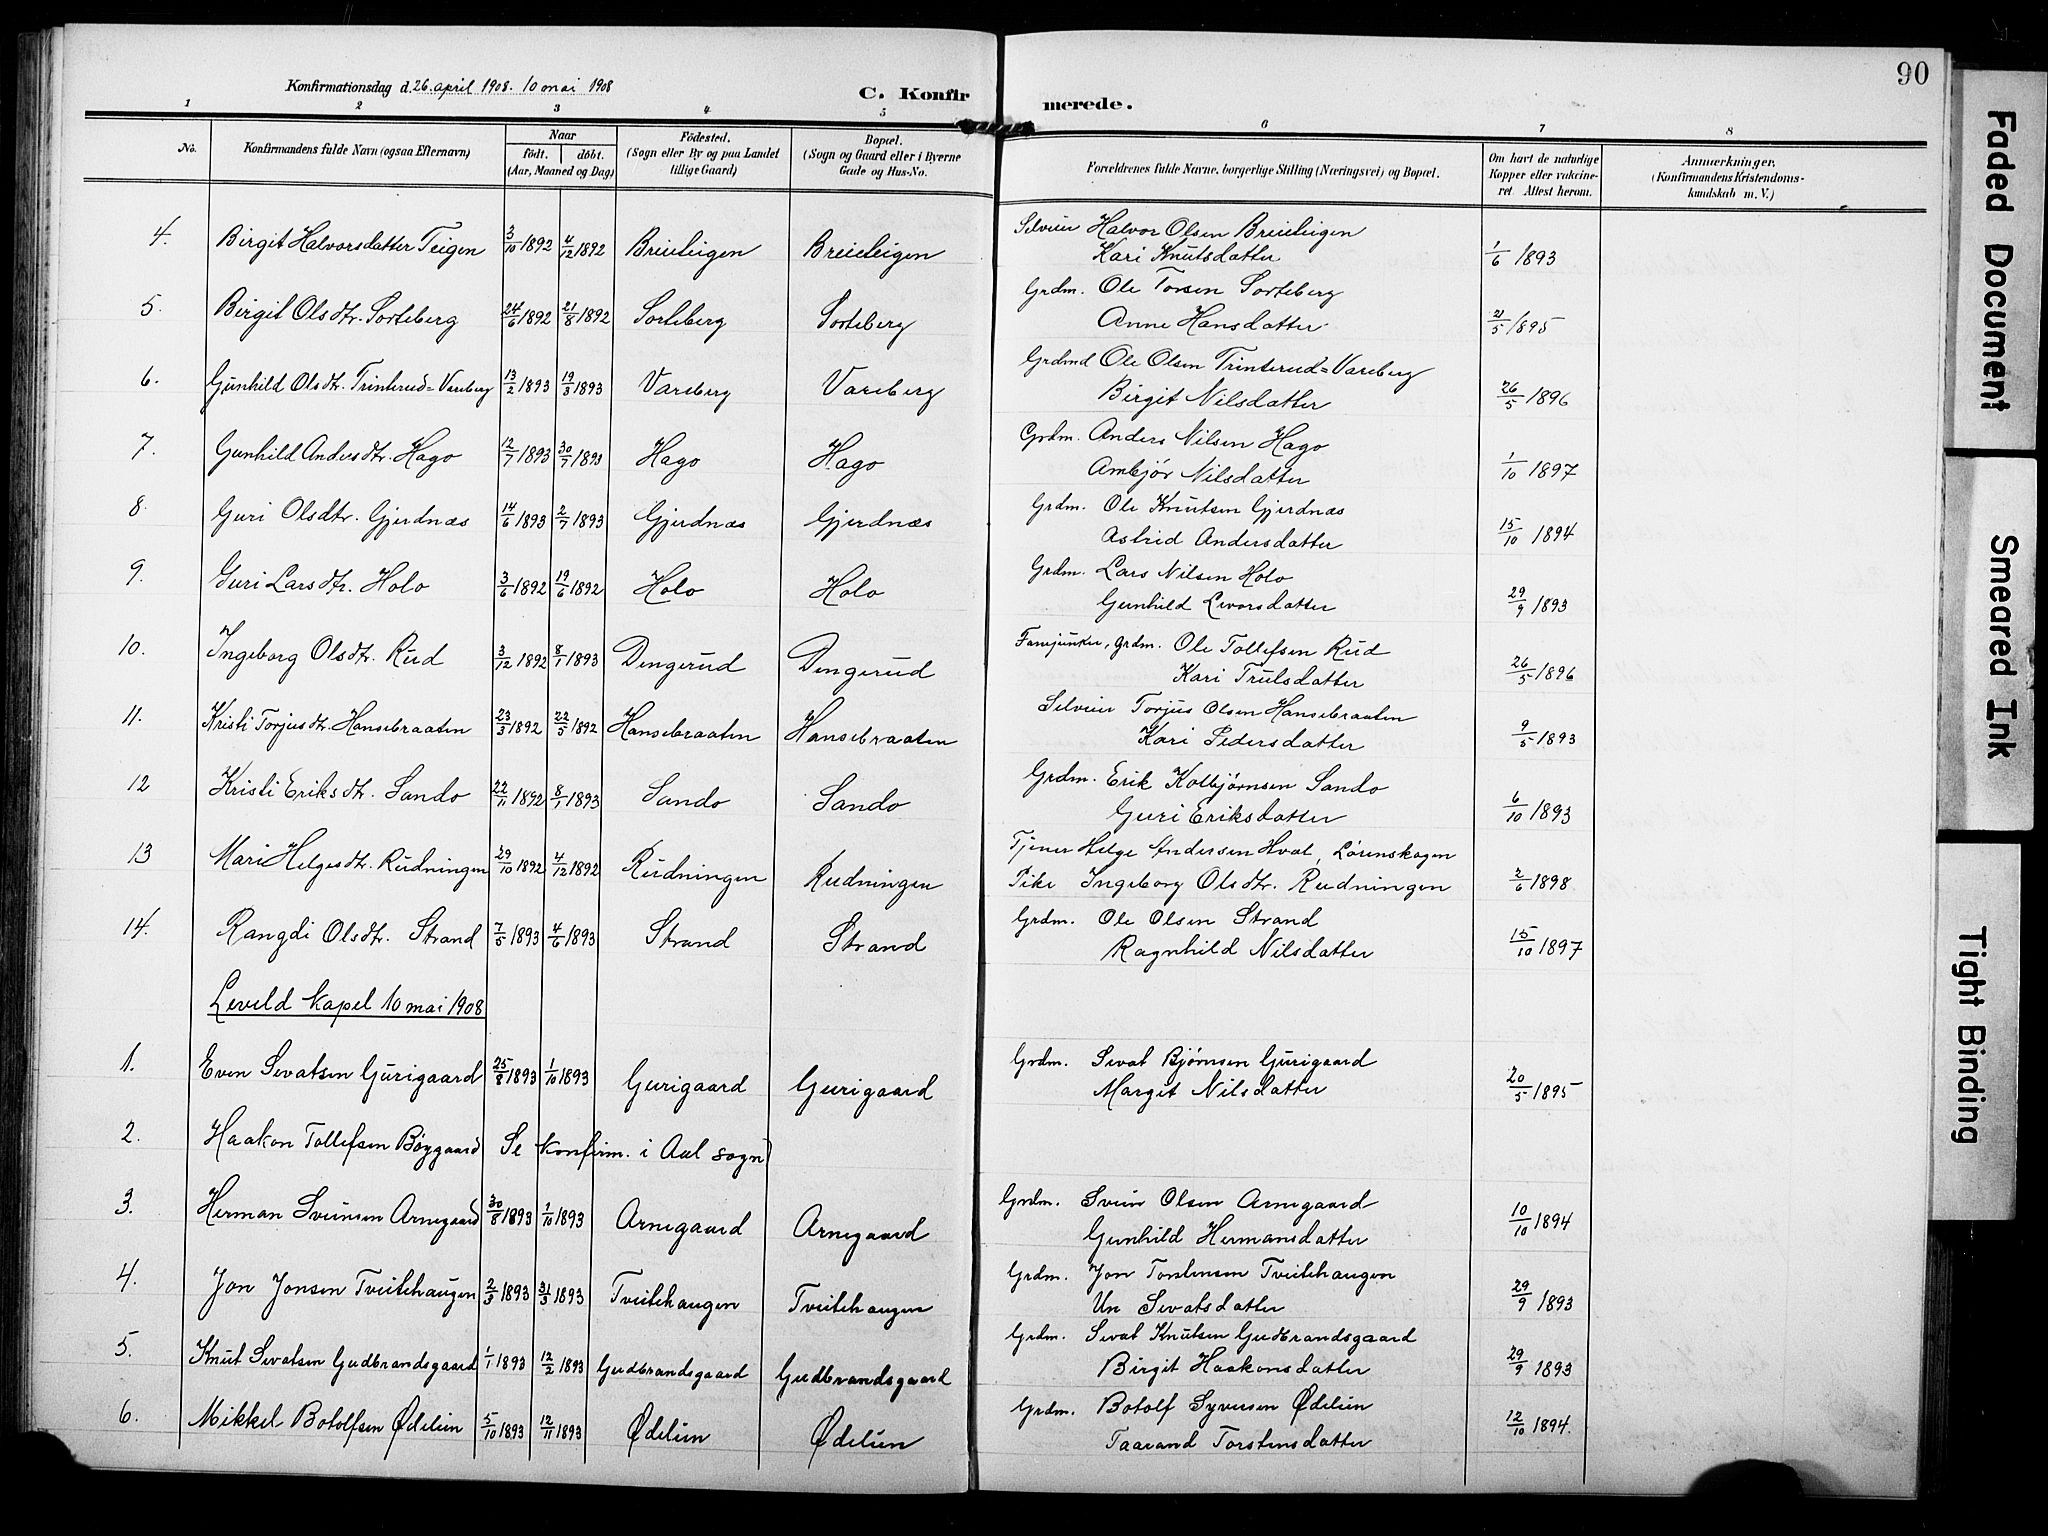 90
Konfirmationsdag d. 26. april 1908. 10 mai 1908
C. Konfirmerede.
1 2 3 4 5 6 7 8
No.
Konfirmandens fulde Navn (ogsaa Efternavn)
Naar
födt. döbt.
(Aar, Maaned og Dag)
Födested.
(Sogn eller By og paa Landet
tillige Gaard)
Bopæl.
(Sogn og Gaard eller i Byerne
Gade og Hus-No.
Forældrenes fulde Navne, borgerlige Stilling (Næringsvei) og Bopæl.
Om havt de naturlige
Kopper eller vakcine-
ret. Attest herom.
Anmærkninger.
(Konfirmandens Kristendoms-
kundskab m. V.)
4. Birgit Halvorsdatter Teigen 3/10 1892 4/12 1892 Breieteigen Breieteigen Selveier Halvor Olsen Breieteigen
Kari Knutsdatter 1/6 1893
5. Birgit Olsdtr. Sorteberg 24/6 1892 21/8 1892 Sorteberg Sorteberg Grdm. Ole Torsen Sorteberg
Anne Hansdatter 21/5 1895
6. Gunhild Olsdtr. Trinterud=Vareberg 13/2 1893 19/3 1893 Vareberg Vareberg Grdmd Ole Olsen Trinterud=Vareberg
Birgit Nilsdatter 26/5 1896
7. Gunhild Andersdtr. Hago 12/7 1893 30/7 1893 Hago Hago Grdm. Anders Nilsen Hago
Ambjør Nilsdatter 1/10 1897
8. Guri Olsdtr. Gjerdnæs 14/6 1893 2/7 1893 Gjerdnæs Gjerdnæs Grdm. Ole Knutsen Gjerdnæs
Astrid Andersdatter 15/10 1894
9. Guri Larsdtr. Holo 3/6 1892 19/6 1892 Holo Holo Grdm. Lars Nilsen Holo
Gunhild Levorsdatter 29/9 1893
10. Ingeborg Olsdtr. Rud 3/12 1892 8/1 1893 Dengerud Dengerud Fanejunker, Grdm. Ole Tollefsen Rud
Kari Trulsdatter 26/5 1896
11. Kristi Torjusdtr. Hansebraaten 23/3 1892 22/5 1892 Hansebraaten Hansebraaten Selveier Torjus Olsen Hansebraaten
Kari Pedersdatter 9/5 1893
12 Kristi Eriksdtr. Sando 22/11 1892 8/1 1893 Sando Sando Grdm. Erik Kolbjørnsen Sando
Guri Eriksdatter 6/10 1893
13 Mari Helgesdtr. Rudningen 29/10 1892 4/12 1892 Rudningen Rudningen Tjener Helge Andersen Hval, Lørenskogen
Pike Ingeborg Olsdtr. Rudningen 2/6 1898
14. Rangdi Olsdtr. Strand 7/5 1893 4/6 1893 Strand Strand Grdm. Ole Olsen Strand
Ragnhild Nilsdatter 15/10 1897
Leveld kapel 10 mai 1908
1. Even Sevatsen Gurigaard 25/8 1893 1/10 1893 Gurigaard Gurigaard Grdm. Sevat Bjørnsen Gurigaard
Margit Nilsdatter 20/5 1895
2. Haakon Tollefsen Bøygaard Se konfirm. i Aal sogn
3. Herman Sveinsen Arnegaard 30/8 1893 1/10 1893 Arnegaard Arnegaard Grdm. Svein Olsen Arnegaard
Gunhild Hermansdatter 10/10 1894
4. Jon Jonsen Tveitehaugen 2/3 1893 31/3 1893 Tveitehaugen Tveitehaugen Grdm. Jon Torstensen Tveitehaugen
Un Sevatsdatter 29/9 1893
5. Knut Sevatsen Gudbrandsgaard 1/1 1893 12/2 1893 Gudbrandsgaard Gudbrandsgaard Grdm. Sevat Knutsen Gudbrandsgaard
Birgit Haakonsdatter 29/9 1893
6. Mikkel Botolfsen Ødelien 5/10 1893 12/11 1893 Ødelien Ødelien Grdm. Botolf Syversen Ødelien
Taarand Torstensdatter 12/10 1894.
Faded Document
Smeared Ink
Tight Binding